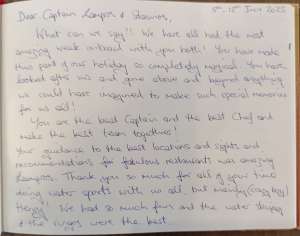 5th - 15th July 2025
Dear Captain & ,
What can we say!! We have all had the most
amazing week onboard with you both! You have made
this part of our holiday so completely magical. You have
looked after us and gone above and beyond anything
we could have imagined to make such special memories
for us all!
You are the best Captain and the best Chef and
make the best team together!
Your guidance to the best locations and sights and
recommendations for fabulous restaurants was amazing
Thank you so much for all of your time
doing water sports with us all, but mainly
Henry! We had so much fun and the water
& the were the best